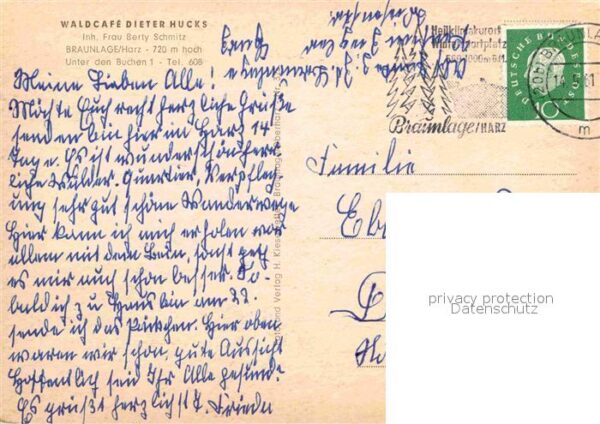 WALDCAFÉ DIETER HUCKS
Inh. Frau Berty Schmitz
BRAUNLAGE/Harz - 720 m hoch
Unter den Buchen 1 - Tel. 608
Meine Lieben Alle!
Möchte Euch recht herzliche Grüße
senden bin hier im Harz 14
Tage. Es ist wunderschön herr-
liche Wälder. Quartier, Verpfleg-
ung sehr gut schöne Wanderwege
Hier kann ich mich erholen vor
allem mit dem Bein, sonst geht
es mir auch schon besser. So-
bald ich zu Haus bin am 22.
sende ich das Päckchen. Hier oben
waren wir schon, gute Aussicht
Hoffentlich seid Ihr Alle gesund?
Es grüßt herzlichst Frieda
Verlag H.
Heilklimakurort
Wintersportplatz
Braunlage/HARZ
DEUTSCHE BUNDESPOST
10
m
Familie
privacy protection
Datenschutz